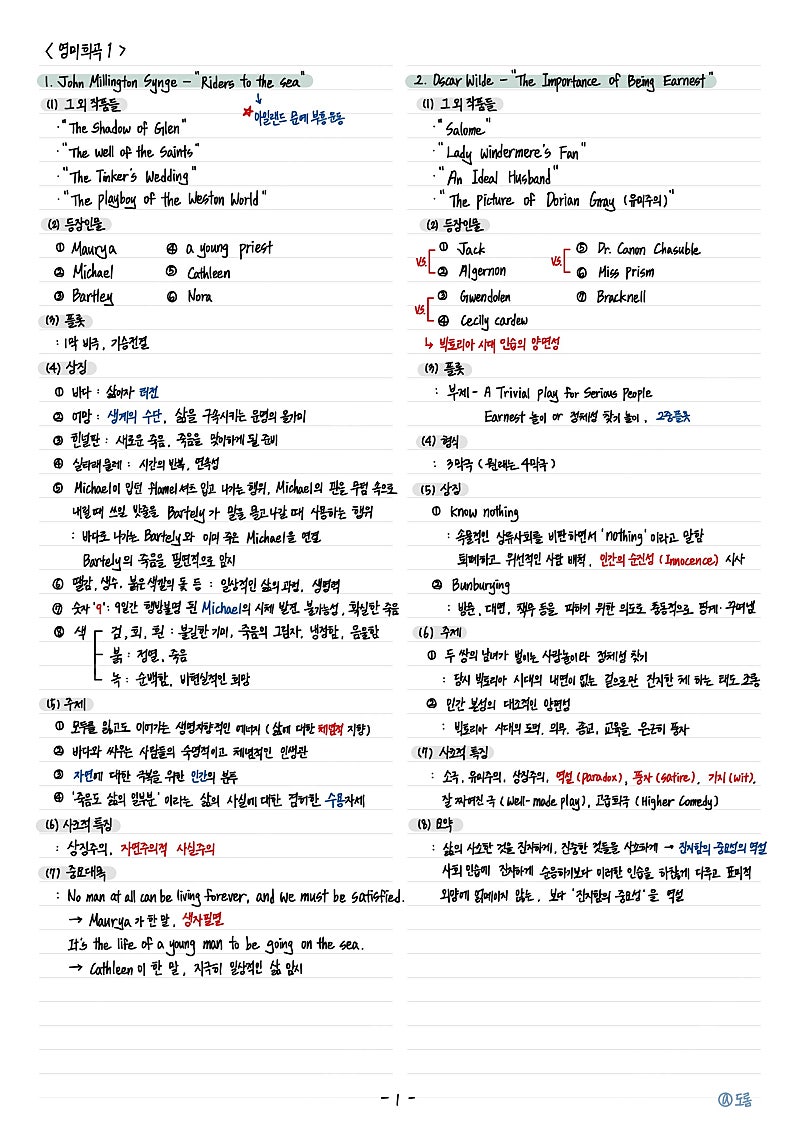 < 영미희곡 1 >
1. John Millington Synge - "Riders to the sea"
(1) 그 외 작품들
↓
☆ 아일랜드 문예 부흥운동
· "The Shadow of Glen"
· "The well of the Saints"
· "The Tinker's Wedding"
· "The playboy of the Weston World"
(2) 등장인물
① Maurya ④ a young priest
② Michael ⑤ Cathleen
③ Bartley ⑥ Nora
(3) 플롯
: 1막 비극, 기승전결
(4) 상징
① 바다 : 삶이자 터전
② 어망 : 생계의 수단, 삶을 구속시키는 운명의 올가미
③ 흰널판 : 새로운 죽음, 죽음을 맞이하게 될 준비
④ 실타래 물레 : 시간의 반복, 연속성
⑤ Michael이 입던 flamel셔츠 입고 나가는 행위, Michael의 관을 무덤 속으로
내릴 때 쓰일 밧줄을 Bartely가 말을 몰고 나갈 때 사용하는 행위
: 바다로 나가는 Bartely와 이미 죽은 Michael을 연결
Bartely의 죽음을 필연적으로 암시
⑥ 땔감, 생수, 붉은색깔의 돛 등 : 일상적인 삶의 과정, 생명력
⑦ 숫자 '9' : 9일간 행방불명 된 Michael의 시체 발견 불가능성, 확실한 죽음
⑧ 색 검, 회, 흰 : 불길한 기미, 죽음의 그림자, 냉정함, 음울함
붉 : 정열, 죽음
녹 : 순백함, 비현실적인 희망
(5) 주제
① 모두를 잃고도 이어가는 생명지향적인 에너지 (삶에 대한 체념적 지향)
② 바다와 싸우는 사람들의 숙명적이고 체념적인 인생관
③ 자연에 대한 극복을 위한 인간의 분투
④ '죽음도 삶의 일부분' 이라는 삶의 사실에 대한 겸허한 수용자세
(6) 사조적 특징
: 상징주의, 자연주의적 사실주의
(7) 중요대목
: No man at all can be living forever, and we must be satisfied.
→ Maurya가 한 말, 생자필멸
It's the life of a young man to be going on the sea.
→ Cathleen이 한 말, 지극히 일상적인 삶 암시
2. Oscar Wilde - "The Importance of Being Earnest"
(1) 그 외 작품들
· "Salome"
· "Lady Windermere's Fan"
· "An Ideal Husband"
· "The picture of Dorian Gray (유미주의)"
(2) 등장인물
VS. ① Jack VS. ⑤ Dr. Canon Chasuble
② Algernon ⑥ Miss Prism
VS. ③ Gwendolen ⑦ Bracknell
④ Cecily cardew
↳ 빅토리아 시대 인습의 양면성
(3) 플롯
: 부제 - A Trivial play for Serious People
Earnest 놀이 or 정체성 찾기 놀이, 2중플롯
(4) 형식
: 3막극 (원래는 4막극)
(5) 상징
① know nothing
: 속물적인 상류사회를 비판하면서 'nothing'이라고 말함
퇴폐하고 위선적인 사람 배척, 인간의 순진성 (Innocence) 시사
② Bunburying
: 방문, 대면, 책무 등을 피하기 위한 의도로 충동적으로 핑계·꾸며냄
(6) 주제
① 두 쌍의 남녀가 벌이는 사랑놀이와 정체성 찾기
: 당시 빅토리아 시대의 내면이 없는 겉으로만 진지한 체 하는 태도 조롱
② 인간 본성의 대조적인 양면성
: 빅토리아 시대의 도덕, 의무, 종교, 교육을 은근히 풍자
(7) 사조적 특징
: 소극, 유미주의, 상징주의, 역설 (paradox), 풍자 (satire), 기지 (wit),
잘 짜여진 극 (Well-made play), 고급희극 (Higher Comedy)
(8) 요약
: 삶의 사소한 것을 진지하게, 진중한 것들을 사소하게 → 진지함의 중요성의 역설
사회 인습에 진지하게 순응하기보다 이러한 인습을 하찮게 다루고 표피적
외양에 얽매이지 않는, 보다 '진지함의 중요성'을 역설
- 1 -
ⓐ 도롬